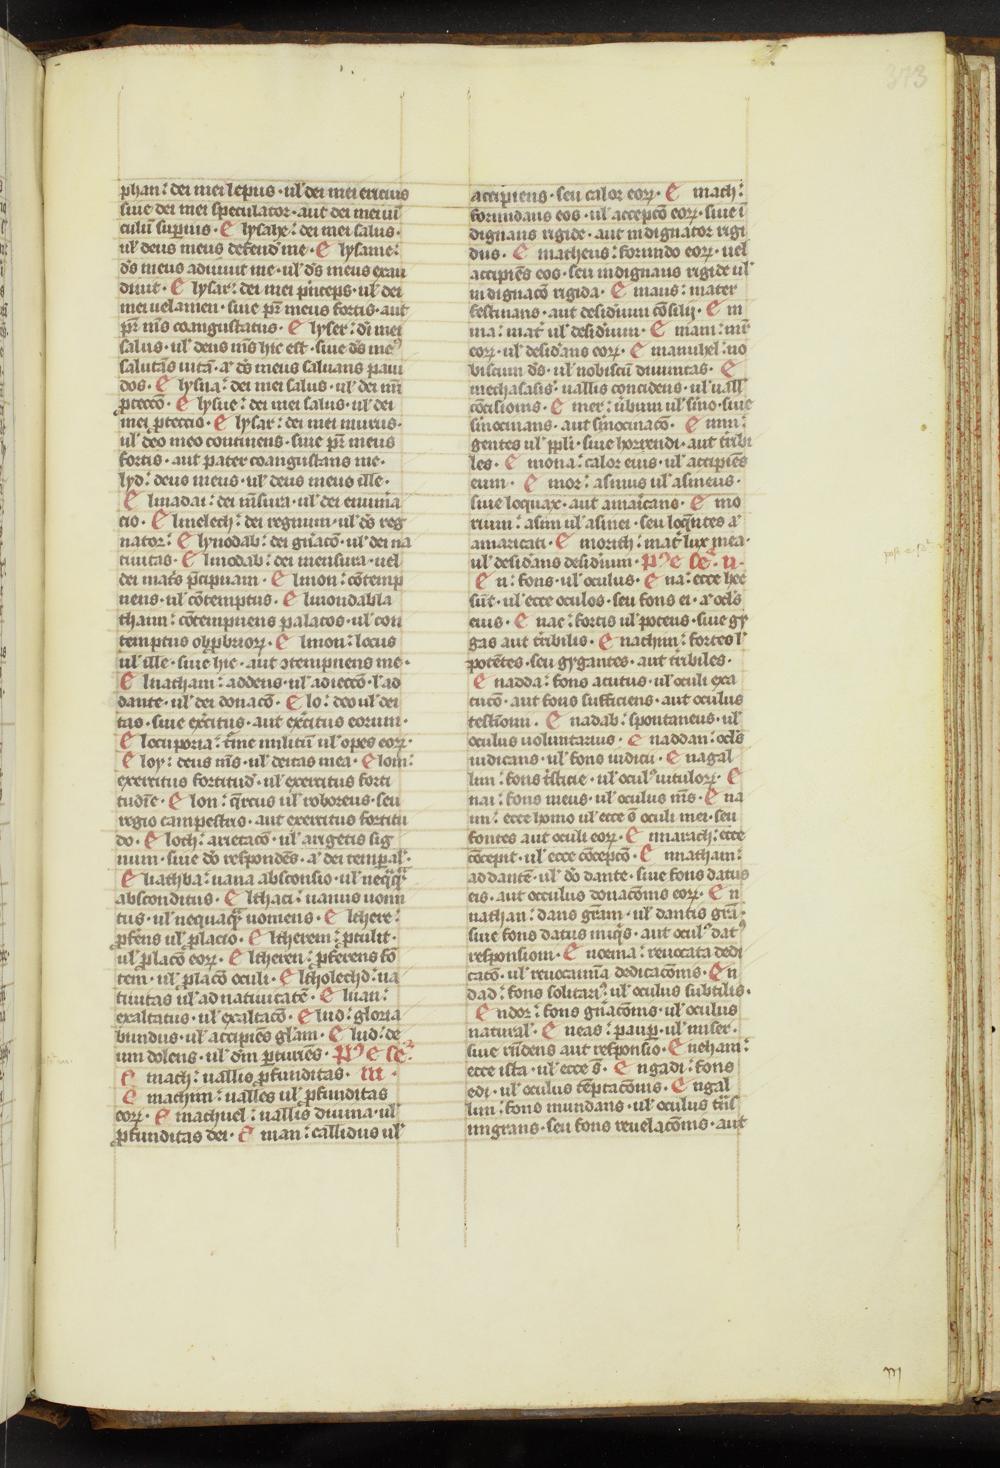 373
phan: dei mei lepus · ul' dei mei ericius
siue dei mei speculator · aut dei mei ui
culū suꝑius · E lysaxe: dei mei salus ·
ul' deus meus defend' me · E lysame:
d̄s meus adiuuit me · ul' d̄s meus exau
diuit · E lysar: dei mei p̄nceps · ul' dei
mei uelamen · siue pr̄ meus fortis · aut
pr̄ m̄s coangustatus · E lyser: d̄i mei
salus · ul' deus m̄s hic est · siue d̄s me
salutās uitā · a' d̄s meus saluans paui
dos · E lysua: dei mei salus · ul' dei m̄i
ꝓteccō · E lysue: dei mei salus · ul' dei
mei ꝓteccio · E lysar: dei mei murus ·
ul' deo meo continens · siue pr̄ meus
fortis · aut pater coangustans me ·
lyd: deus meus · ul' deus meus ille ·
E lmadai: dei m̄sura · ul' dei enumᵃ
cio · E lmelech: dei regnum · ul' d̄s reg
nator: E lynodab: dei gn̄acō · ul' dei na
tiuitas · E lmodab: dei mensura · uel
dei matˢ p̄cipuam · E lmon: cōtemp
nens · ul' cōtemptus · E lmondabla
thaim: cōtempnens palatos · ul' con
temptus obꝓbrioꝝ · E lmon: locus
ul' ille · siue hic · aut ↄtempnens me ·
E lnatham: addens · ul' adieccō · l' ad
dante · ul' dei donacō · E lo: deo ul' dei
tas · siue ex̄citus · aut ex̄citus eorum ·
E locuporia: t̄me militū ul' opes eoꝝ ·
E loy: deus m̄s · ul' deitas mea · E lom:
exercitus fortitud' · ul' exercitus forti
tudīe · E lon: q̄rcus ul' roboreus · seu
regio campestris · aut exercitus fortitu
do · E loth: arietacō · ul' arigetis sig
num · siue d̄o respondēs · a' dei tempal'
E ltathba: uana absconsio · ul' neqꝗ̄
absconditus · E lthaci: uanus uom
tus · ul' nequaꝗ̄ uomens · E lthere:
ꝓferēs ul' ꝓlacio · E ltherem: ꝓtulit ·
ul' ꝓlacō eoꝝ · E ltheren: ꝓferens fō
tem · ul' ꝓlacō oculi · E ltholechd: na
tiuitas ul' ad natiuitatē · E luan:
exaltatus · ul' exaltacō · E lud: gloria
bundus · ul' accipiēs gl'am · E lud: de
um dolens · ul' d̄m ꝑturiēs · Pꝰ e se
E mach: uallis ꝓfunditas · m ·
E machim: ualles ul' ꝓfunditas
eoꝝ · E machuel: uallis diuina · ul'
ꝓfunditas dei · E man: callidus ul'
accipiens · seu calor eoꝝ · E math:
formidans eos · ul' accepcō eoꝝ · siue ī
dignans rigide · aut indignator rigi
dus · E matheus: formido eoꝝ · uel
accipiēs eos · seu indignans rigide ul'
indignacō rigida · E maus: mater
festinans · aut desid'ium cōsilij · E m
ma: mat̄ ul' desid'ium · E mam: mr̄
eoꝝ · ul' desid'ans eoꝝ · E manuhel: no
biscum d̄s · ul' nobiscū diuinitas · E
mechasasis: uallis concidens · ul' uall'
cōcisionis · E mer: u̇bum ul' s̄mo · siue
s̄mocinans · aut s̄mocinacō · E mim:
gentes ul' ppl'i · siue horrendi · aut t̄ribi
les · E mona: calor eius · ul' accipiēs
eum · E mor: asinus ul' asineus ·
siue loquax · aut amaricans · E mo
rium: asini ul' asinei · seu loq̄ntes a'
amaricati · E morith: mat̄ lux mea ·
ul' desid'ans desid'ium · Pꝰ e se · n ·
E n: fons · ul' oculus · E na: ecce hec
sūt · ul' ecce oculos · seu fons ei · a' ocl's
eius · E nac: fortis ul' potens · siue gy
gas aut t̄ribilis · E nachim: fortes l'
potētes · seu gygantes · aut t̄ribiles ·
E nadda: fons acutus · ul' oculi exa
tucō · aut fons sufficiens · aut oculus
testīoni · E nadab: spontaneus · ul'
oculus uoluntarius · E naddan: ocl's
iudicans · ul' fons iudicii · E nagal
lim: fons tˢsticie · ul' ocul' uituloꝝ · E
nai: fons meus · ul' oculus m̄s · E na
im: ecce homo ul' ecce s̄ oculi mei · seu
fontes aut oculi eoꝝ · E marach: ecce
cōcepit · ul' ecce cōcepcō · E matham:
ad dantē · ul' d̄o dante · siue fons datus
eis · aut occulus donacōnis eoꝝ · E n
nathan: dans gr̄am · ul' dantis grā ·
siue fons datus miꝗ̄s · aut ocul' datꝰ
responsiom · E noema: reuocata dedi
cacō · ul' reuocamīa dedicacōnis · E n
dad: fons solitariꝰ ul' oculus subtilis ·
E ndor: fons gn̄acōnis · ul' oculus
natural' · E neas: pauꝑ · ul' miser ·
siue rn̄dens aut responsio · E neham:
ecce ista · ul' ecce s̄ · E ngadi: fons
edi · ul' oculus tēptacōnis · E ngal
lim: fons mundans · ul' oculus tn̄s
migrans · seu fons reuelacōnis · aut
m